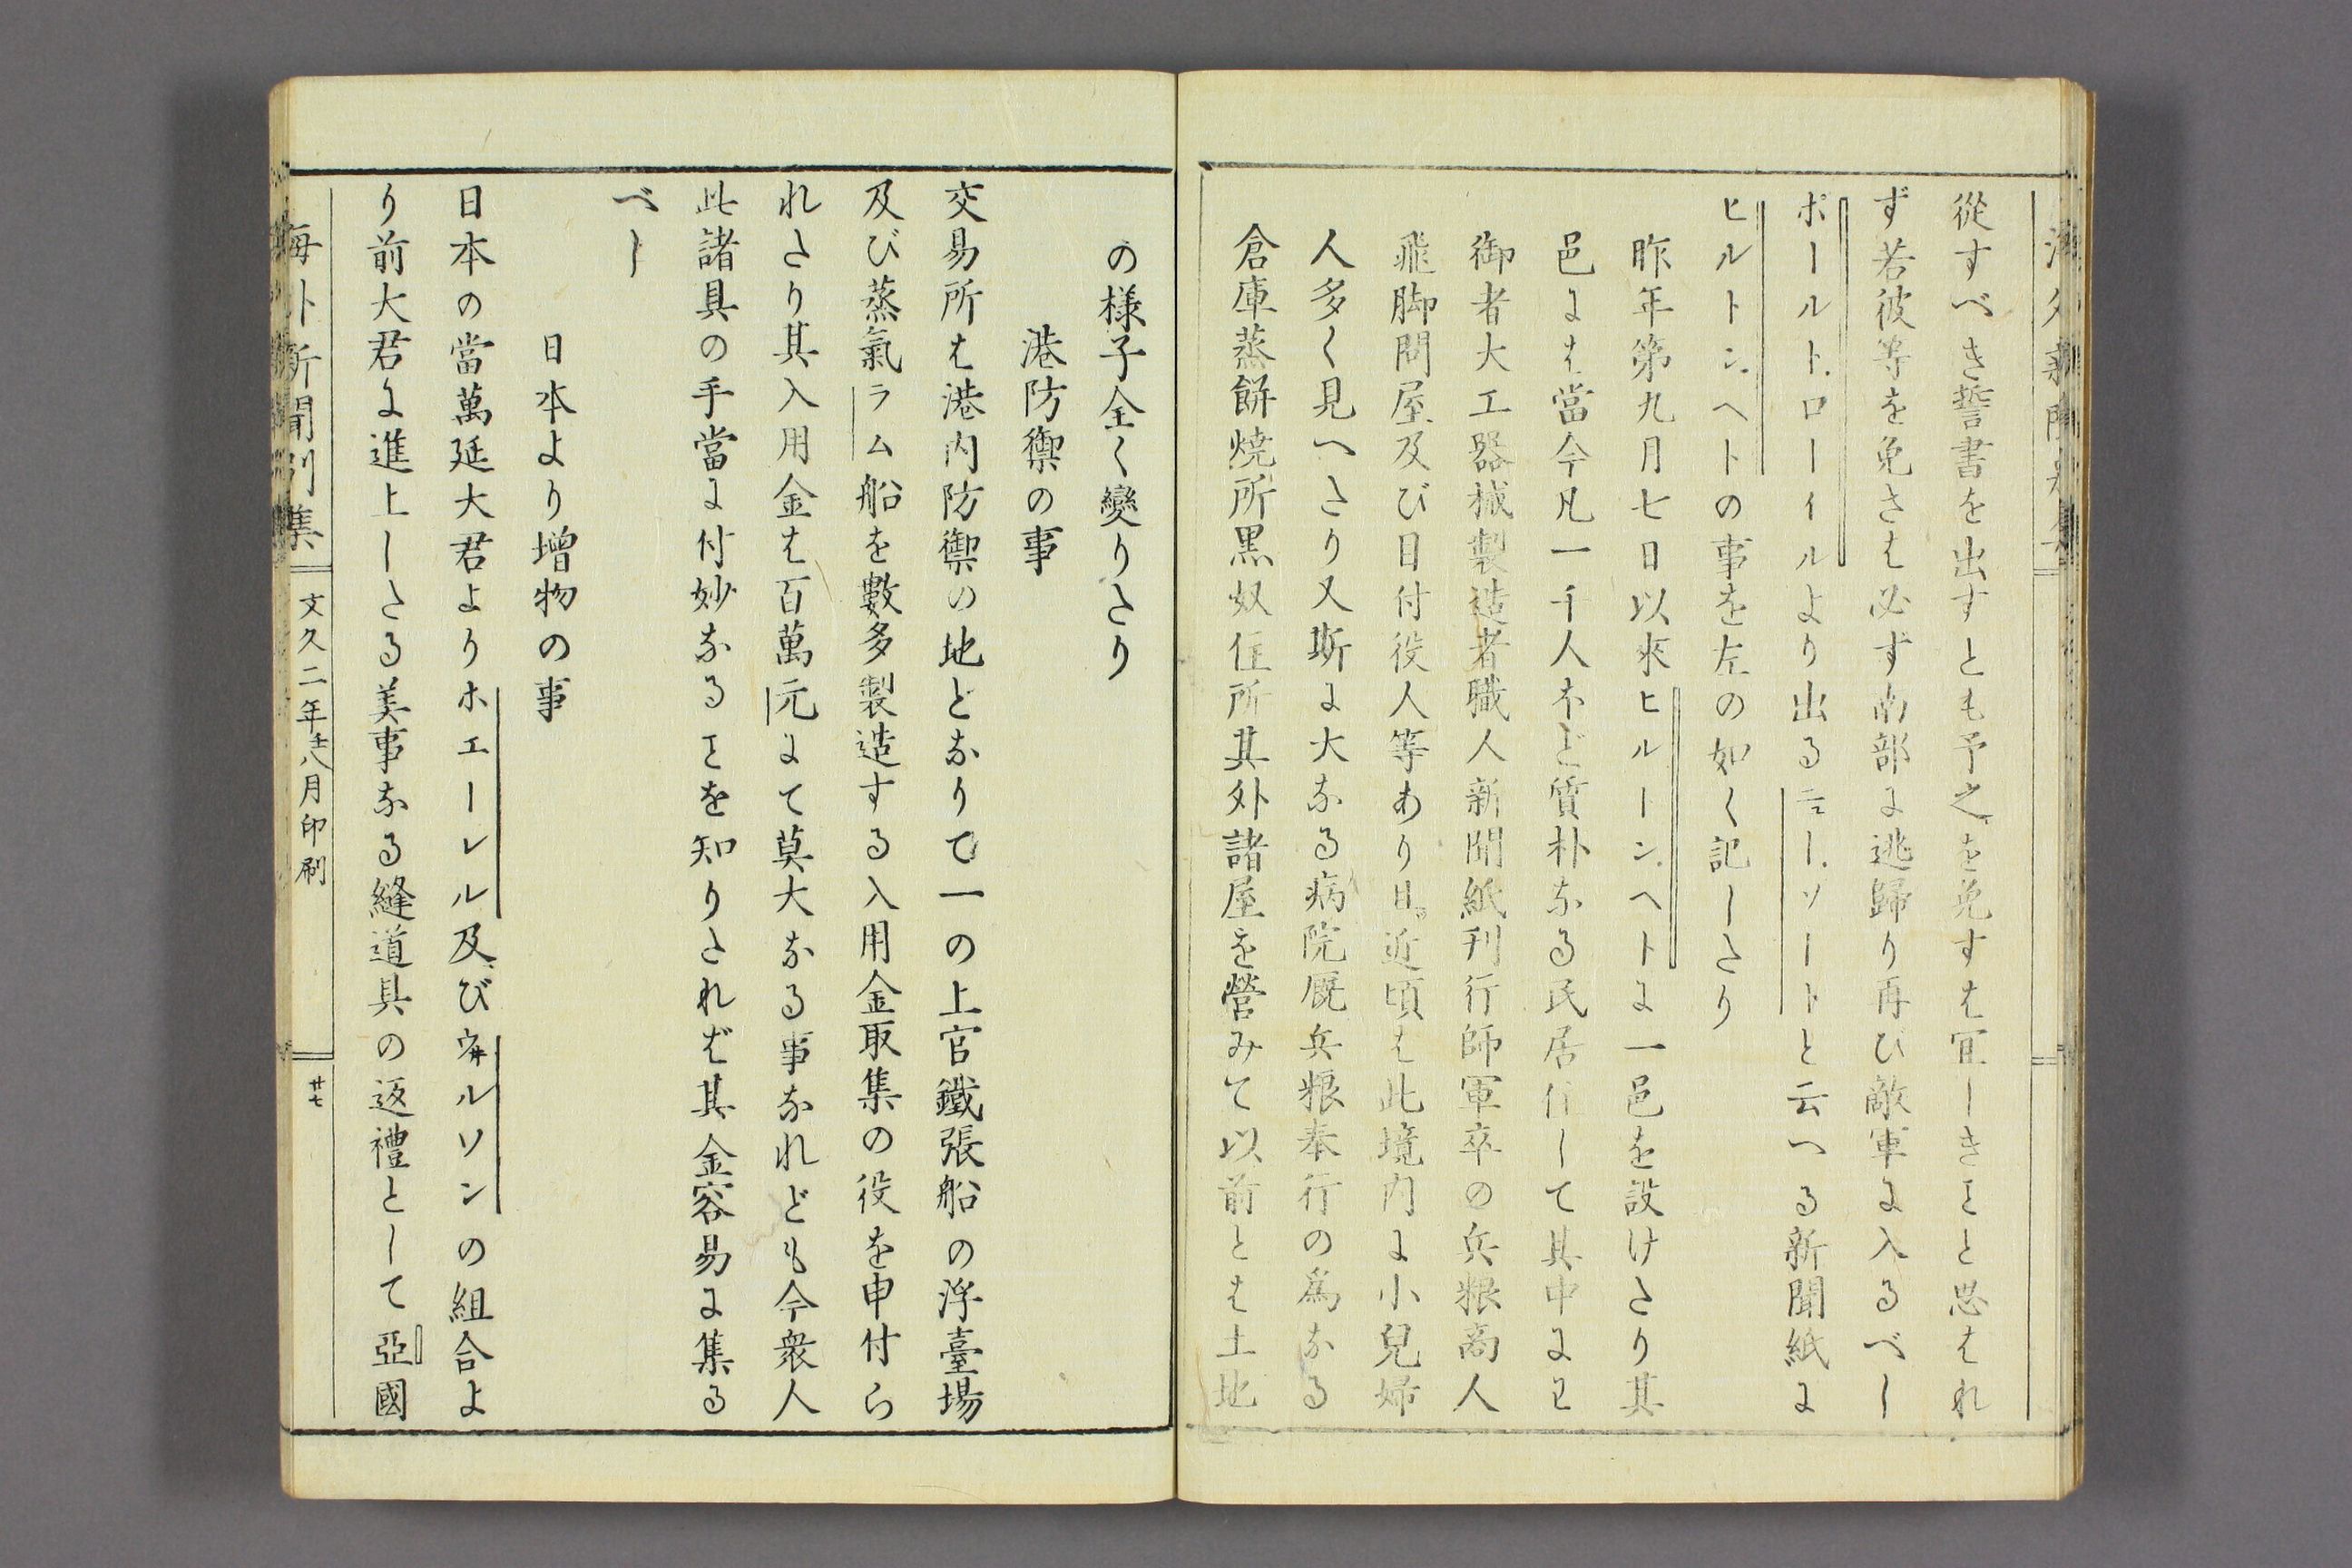 從すべき誓書を出すとも予之を免すは宜しきことと思はれ
ず若彼等を免さは必ず南部に逃歸り再び敵軍に入るべし
ポールトローイルより出るニューソートと云へる新聞紙に
ヒルトンヘトの事を左の如く記したり
昨年第九月七日以來ヒルーンヘトに一邑を設けたり其
邑には當今凡一千人ほど質朴なる民居住して其中には
御者大工器械製造者職人新聞紙刊行師軍卒の兵粮商人
飛脚問屋及び目付役人等あり且近頃は此境内に小兒婦
人多く見へたり又斯に大なる病院厩兵粮奉行の爲なる
倉庫蒸餅燒所黒奴住所其外諸屋を營みて以前とは土地
の様子全く變りたり
港防禦の事
交易所は港内防禦の地となりて一の上官鐵張船の浮臺場
及び蒸氣ラム船を數多製造する入用金取集の役を申付ら
れたり其入用金は百萬元にて莫大なる事なれども今衆人
此諸具の手當に付妙なることを知りたれば其金容易に集る
べし
日本より増物の事
日本の當萬延大君よりホエールレル及びウヰルソンの組合よ
り前大君に進上したる美事なる縫道具の返禮として亞國
海外新聞別集 文久二年壬八月印刷 廿七